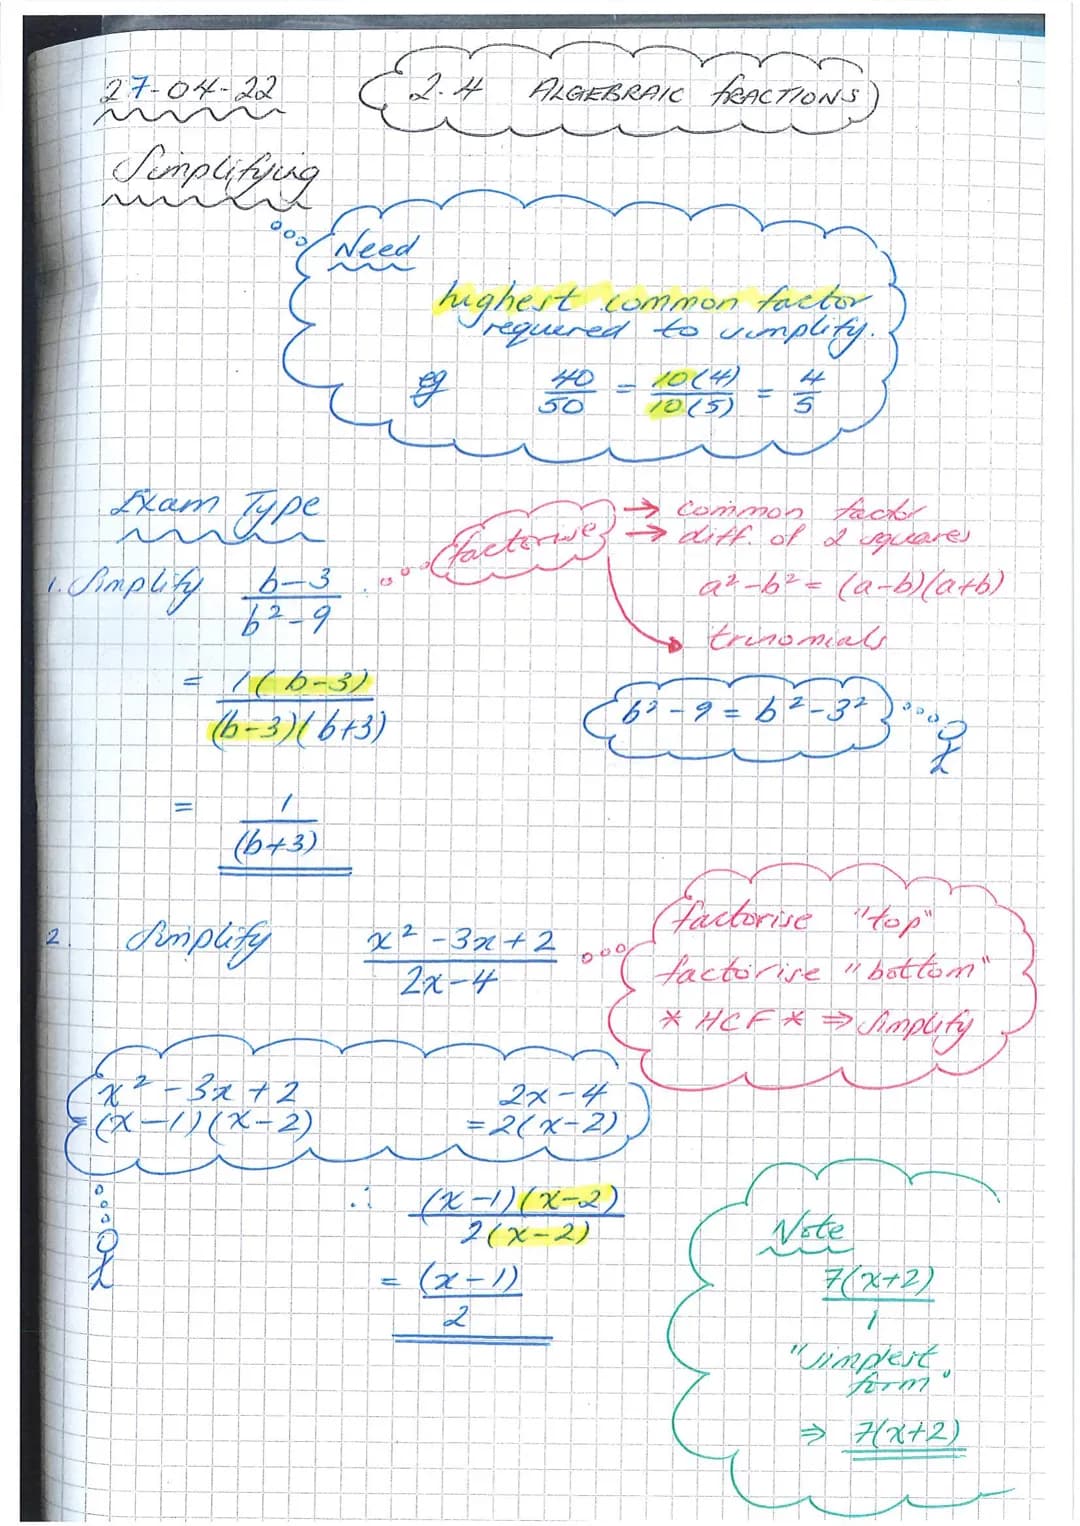 27-04-22
2.4 ALGEBRAIC FRACTIONS
Simplifying
Need
highest common factor
required to simplify.
eg 40/50 = 10(4)/10(5) = 4/5
Exam Type
factorise → common factor
→ diff. of 2 squares
a² - b² = (a-b)(a+b)
→ trinomials
1. Simplify b-3/b²-9
= 1(b-3)/(b-3)(b+3)
b² - 9 = b² - 3²
= 1/(b+3)
2. Simplify x² - 3x + 2/2x - 4
factorise "top"
factorise "bottom"
* HCF * ⇒ simplify
x² - 3x + 2 2x - 4
= (x-1)(x-2) = 2(x-2)
∴ (x-1)(x-2)/2(x-2)
= (x-1)/2
Note
7(x+2)/1
"simplest
form"
⇒ 7(x+2)